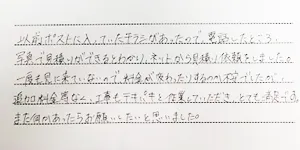 以前ポストに入っていたチラシがあったので、電話したところ、
写真で見積りができるとわかり、ネットから見積り依頼をしました。
一度も見に来ていないので料金が変わったりするのか不安でしたが、
追加料金等なく、工事もテキパキと作業していただき、とても満足です。
また何かあったらお願いしたいと思いました。